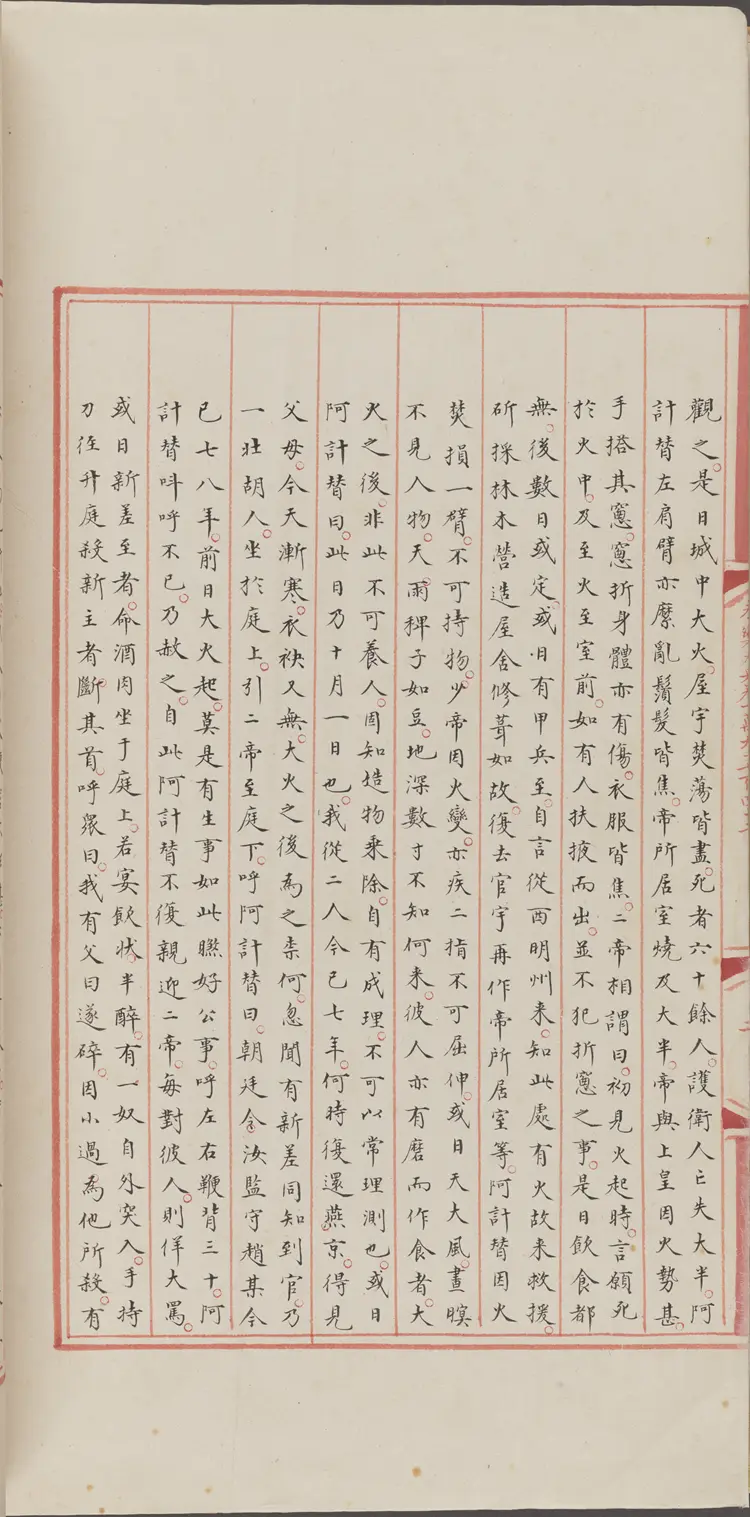 觀之是日城中大火屋宇焚蕩皆盡死者六十餘人護衛人亡失大半阿
計替左肩臂亦縻亂鬚髮皆焦帝所居室燒及大半帝與上皇因火勢甚
手搭其窻窻折身體亦有傷衣服皆焦二帝相謂曰初見火起時言願死
於火中及至火至室前如有人扶掖而出並不犯折窻之事是日飲食都
無後數日或定或日有甲兵至自言從西明州来知此處有火故来救援
斫採林木營造屋舍修葺如故復去官宇再作帝所居室等阿計替因火
焚損一臂不可持物少帝因火變亦疾二指不可屈伸或日天大風晝暝
不見人物天雨稗子如豆地深數寸不知何来彼人亦有磨而作食者大
火之後非此不可養人固知造物乘除自有成理不可以常理測也或日
阿計替曰此日乃十月一日也我從二人今已七年何時復還燕京得見
父母今天漸寒衣袂又無大火之後為之柰何忽聞有新差同知到官乃
一壯胡人坐於庭上引二帝至庭下呼阿計替曰朝廷令汝監守趙某今
已七八年前日大火起莫是有生事如此瞅好公事呼左右鞭背三十阿
計替呌呼不已乃赦之自此阿計替不復親迎二帝每對彼人則佯大罵
或日新差至者命酒肉坐于庭上若宴飲狀半醉有一奴自外突入手持
刀徑升庭殺新主者斷其首呼衆曰我有父曰遂碎因小過為他所殺有